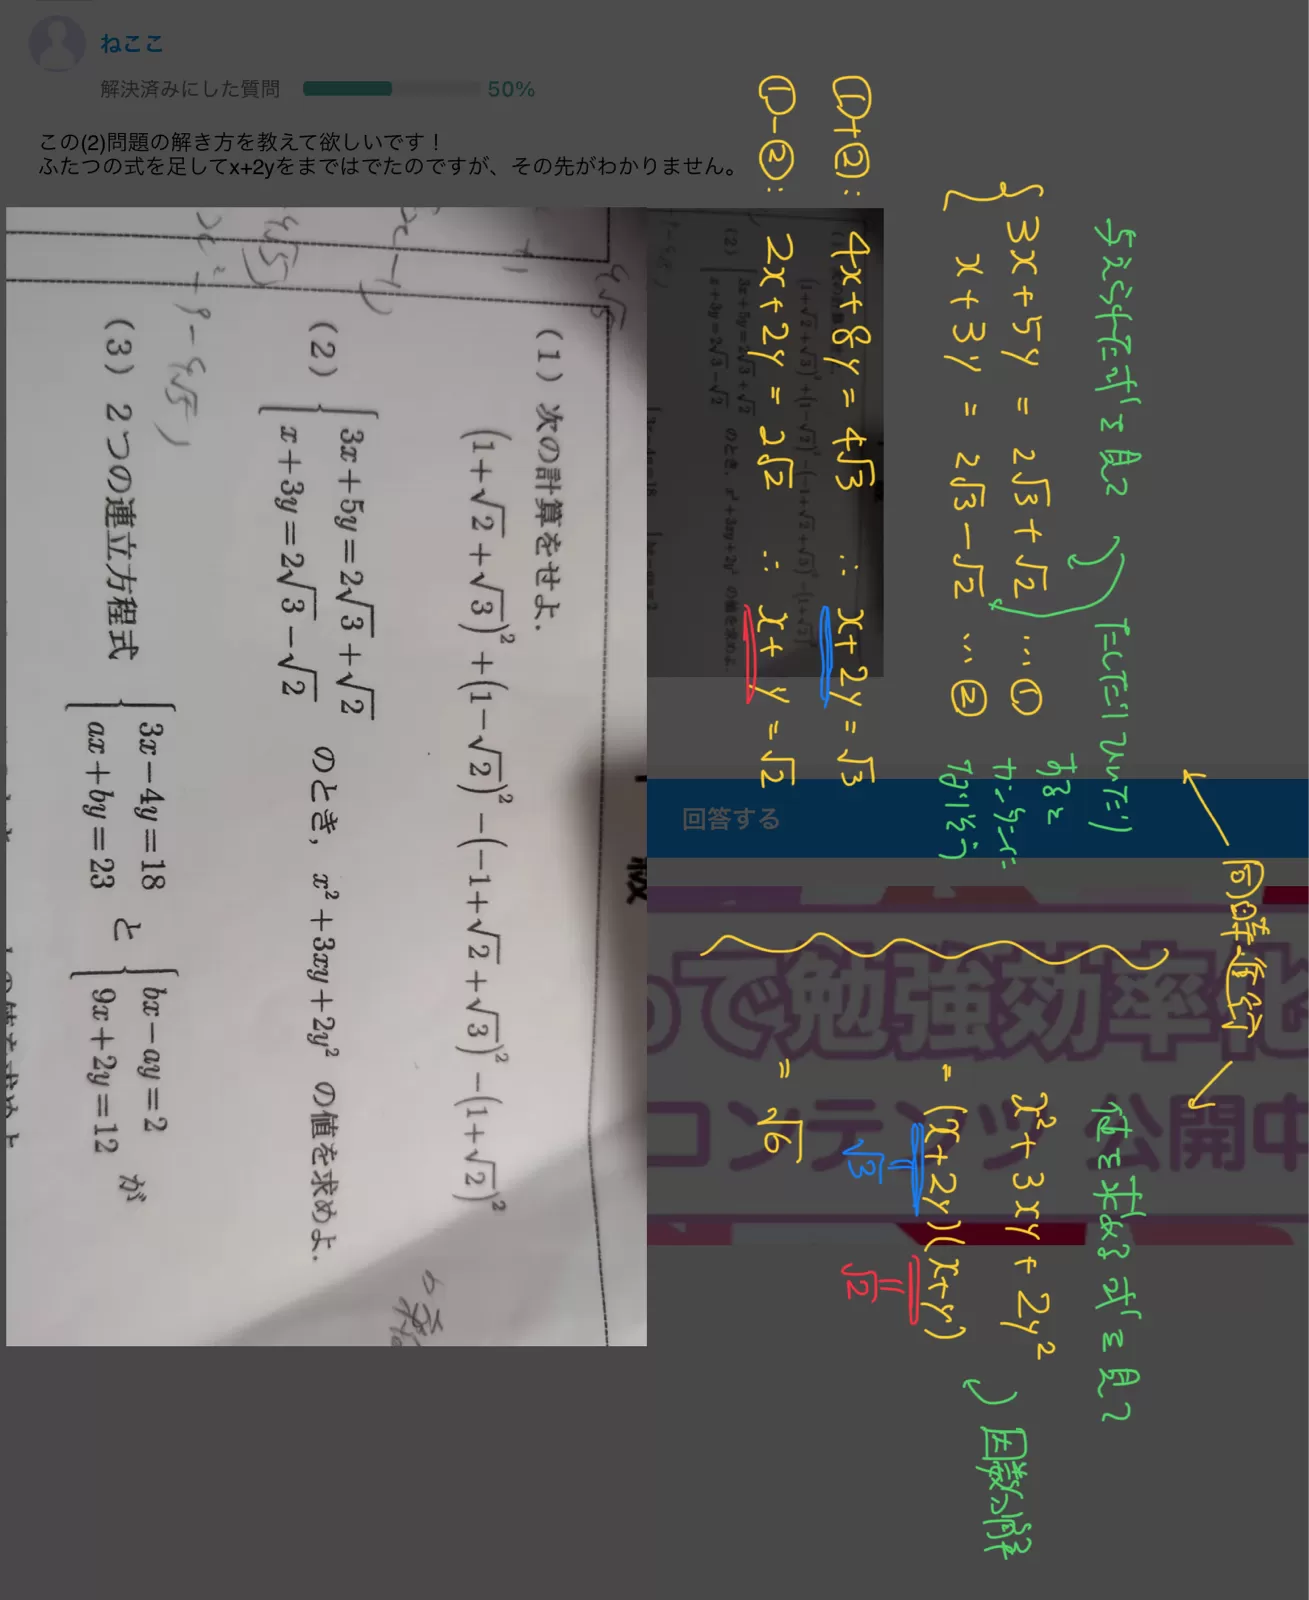 ねここ
解決済みにした質問 50%
この(2)問題の解き方を教えて欲しいです！
ふたつの式を足してx+2yをまではでたのですが、その先がわかりません。
(1) 次の計算をせよ.
(1+√2+√3)²+(1-√2)²-(-1+√2+√3)²-(1+√2)²
(2) { 3x+5y=2√3+√2
x+3y=2√3-√2 のとき, x²+3xy+2y² の値を求めよ.
(3) 2つの連立方程式 { 3x-4y=18
ax+by=23 と { bx-ay=2
9x+2y=12 が
与えられた式を見て
たしたりひいたり
すると
カンタンに
なりそう
{ 3x+5y = 2√3+√2 … ①
x+3y = 2√3-√2 … ②
①+②: 4x+8y=4√3 ∴ x+2y=√3
①-②: 2x+2y=2√2 ∴ x+y=√2
同時進行
値を求める式を見て
x²+3xy+2y²
因数分解
= (x+2y)(x+y)
√3 √2
= √6
回答する
で勉強効率化
コンテンツ公開中